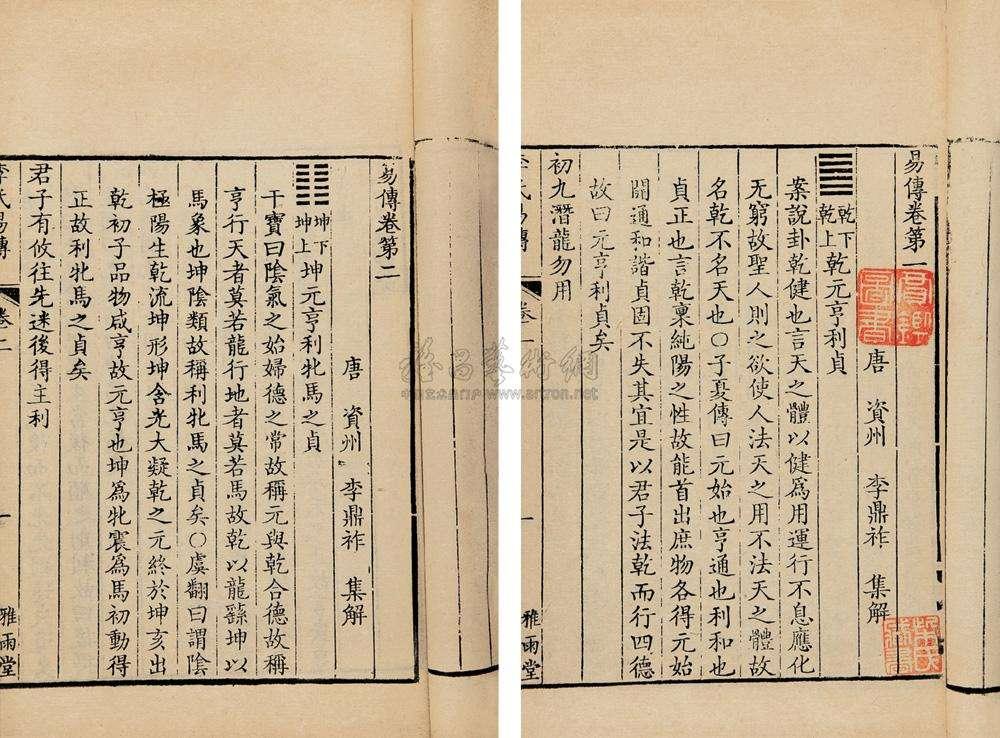 易傳卷第一
唐 資州 李鼎祚 集解
乾下
乾上
乾元亨利貞
案說卦乾健也言天之體以健爲用運行不息應化
无窮故聖人則之欲使人法天之用不法天之體故
名乾不名天也〇子夏傳曰元始也亨通也利和也
貞正也言乾稟純陽之性故能首出庶物各得元始
開通和諧貞固不失其宜是以君子法乾而行四德
故曰元亨利貞矣
初九潛龍勿用
李氏易傳
卷一
一
雅雨堂
易傳卷第二
唐 資州 李鼎祚 集解
坤下
坤上
坤元亨利牝馬之貞
干寶曰陰氣之始婦德之常故稱元與乾合德故稱
亨行天者莫若龍行地者莫若馬故乾以龍繇坤以
馬象也坤陰類故稱利牝馬之貞矣〇虞翻曰謂陰
極陽生乾流坤形坤含光大凝乾之元終於坤亥出
乾初子品物咸亨故元亨也坤爲牝震爲馬初動得
正故利牝馬之貞矣
君子有攸往先迷後得主利
李氏易傳
卷二
一
雅雨堂
www.artron.net